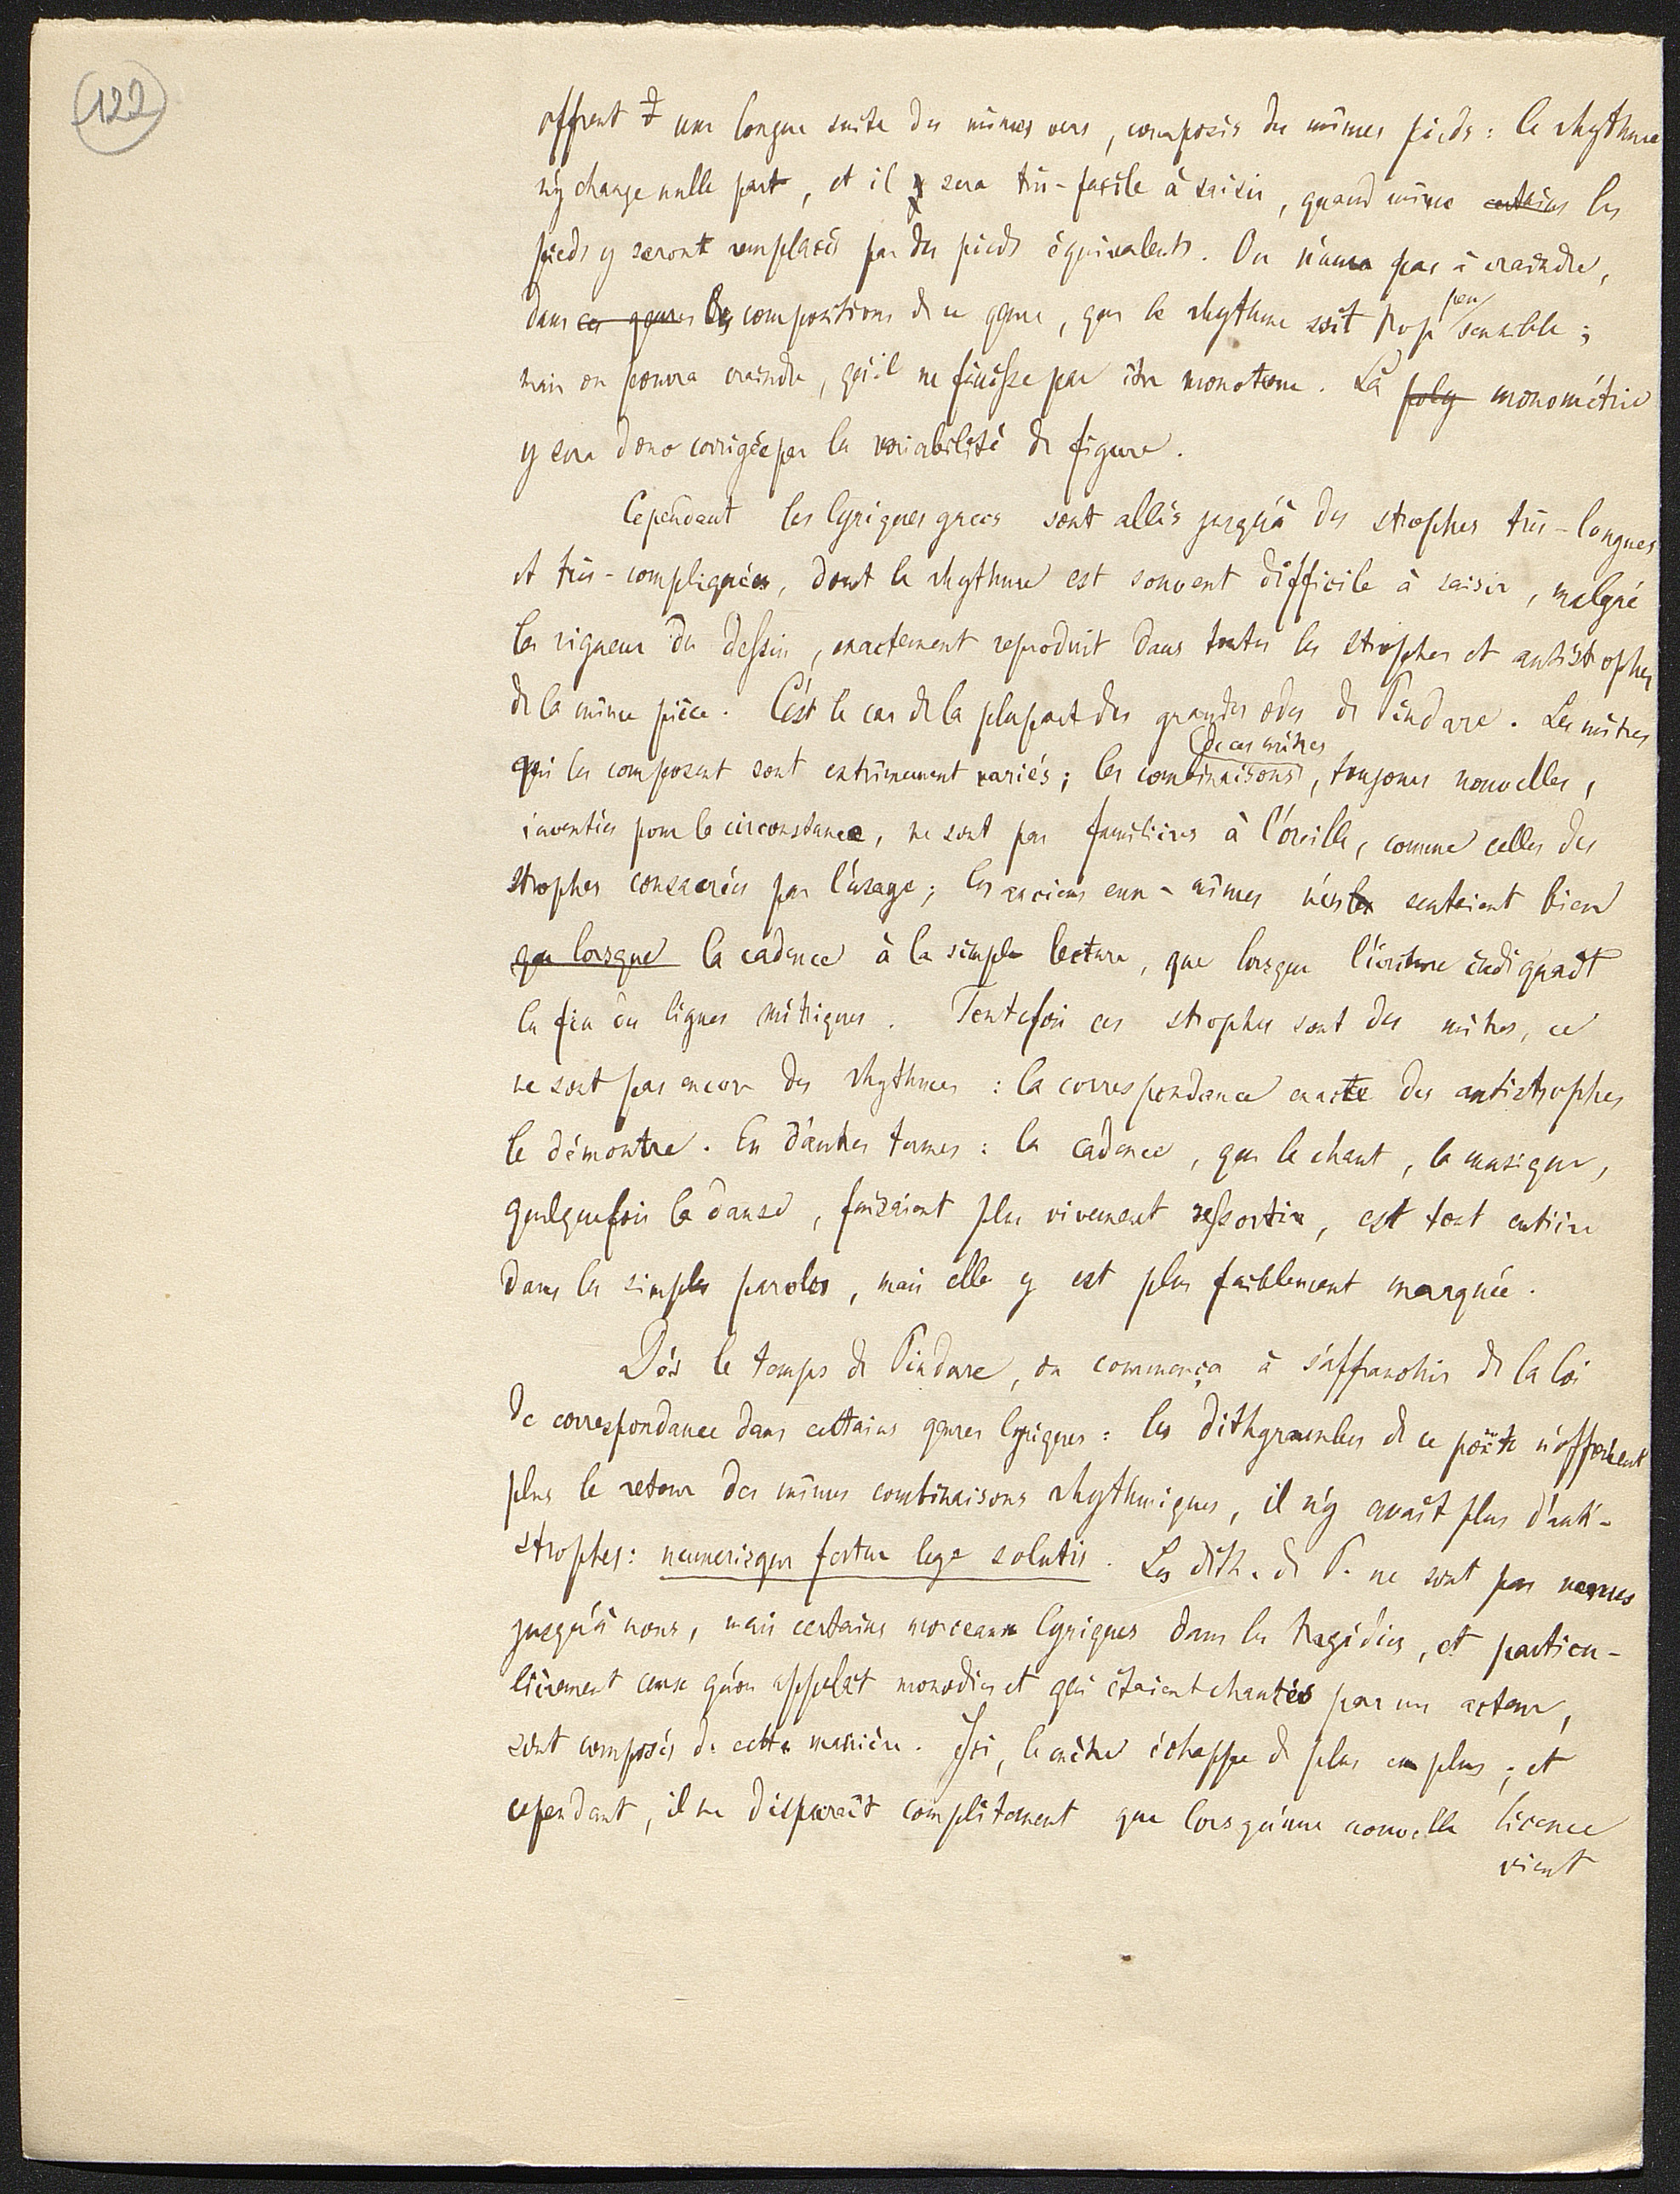 122
offrent une longue suite des mêmes vers, composés des mêmes pieds : le rhythme
n'y change nulle part, et il sera très-facile à saisir, quand même certains les
pieds y seront remplacés par des pieds équivalents. On n'aura pas à craindre,
dans ces genres les compositions de ce genre, que le rhythme soit trop peu sensible ;
mais on pourra craindre, qu'il ne finisse par être monotone. La poly monométrie
y sera donc corrigée par la variabilité de figure.
Cependant les lyriques grecs sont allés jusqu'à des strophes très-longues
et très-compliquées, dont le rhythme est souvent difficile à saisir, malgré
la rigueur du dessin, exactement reproduit dans toutes les strophes et antistrophes
de la même pièce. C'est le cas de la plupart des grandes odes de Pindare. Les mètres
qui les composent sont extrêmement variés ; les combinaisons de ces mètres, toujours nouvelles,
inventées pour la circonstance, ne sont pas familières à l'oreille, comme celles des
strophes consacrées par l'usage ; les anciens eux-mêmes n'en sentaient bien
que lorsque la cadence à la simple lecture, que lorsque l'écriture indiquait
la fin des lignes métriques. Toutefois ces strophes sont des mètres, ce
ne sont pas encore des rhythmes : la correspondance exacte des antistrophes
le démontre. En d'autres termes : la cadence, que le chant, la musique,
quelquefois la danse, faisaient plus vivement ressortir, est tout entière
dans les simples paroles, mais elle y est plus faiblement marquée.
Dès le temps de Pindare, on commença à s'affranchir de la loi
de correspondance dans certains genres lyriques : les dithyrambes de ce poëte n'offraient
plus le retour des mêmes combinaisons rhythmiques, il n'y avait plus d'anti-
strophes : numerisque fertur lege solutis. Les dith. de P. ne sont pas venus
jusqu'à nous, mais certains morceaux lyriques dans les tragédies, et particu-
lièrement ceux qu'on appelait monodies et qui étaient chantés par un acteur,
sont composés de cette manière. Ici, le mètre échappe de plus en plus ; et
cependant, il ne disparaît complètement que lorsqu'une nouvelle licence
vient